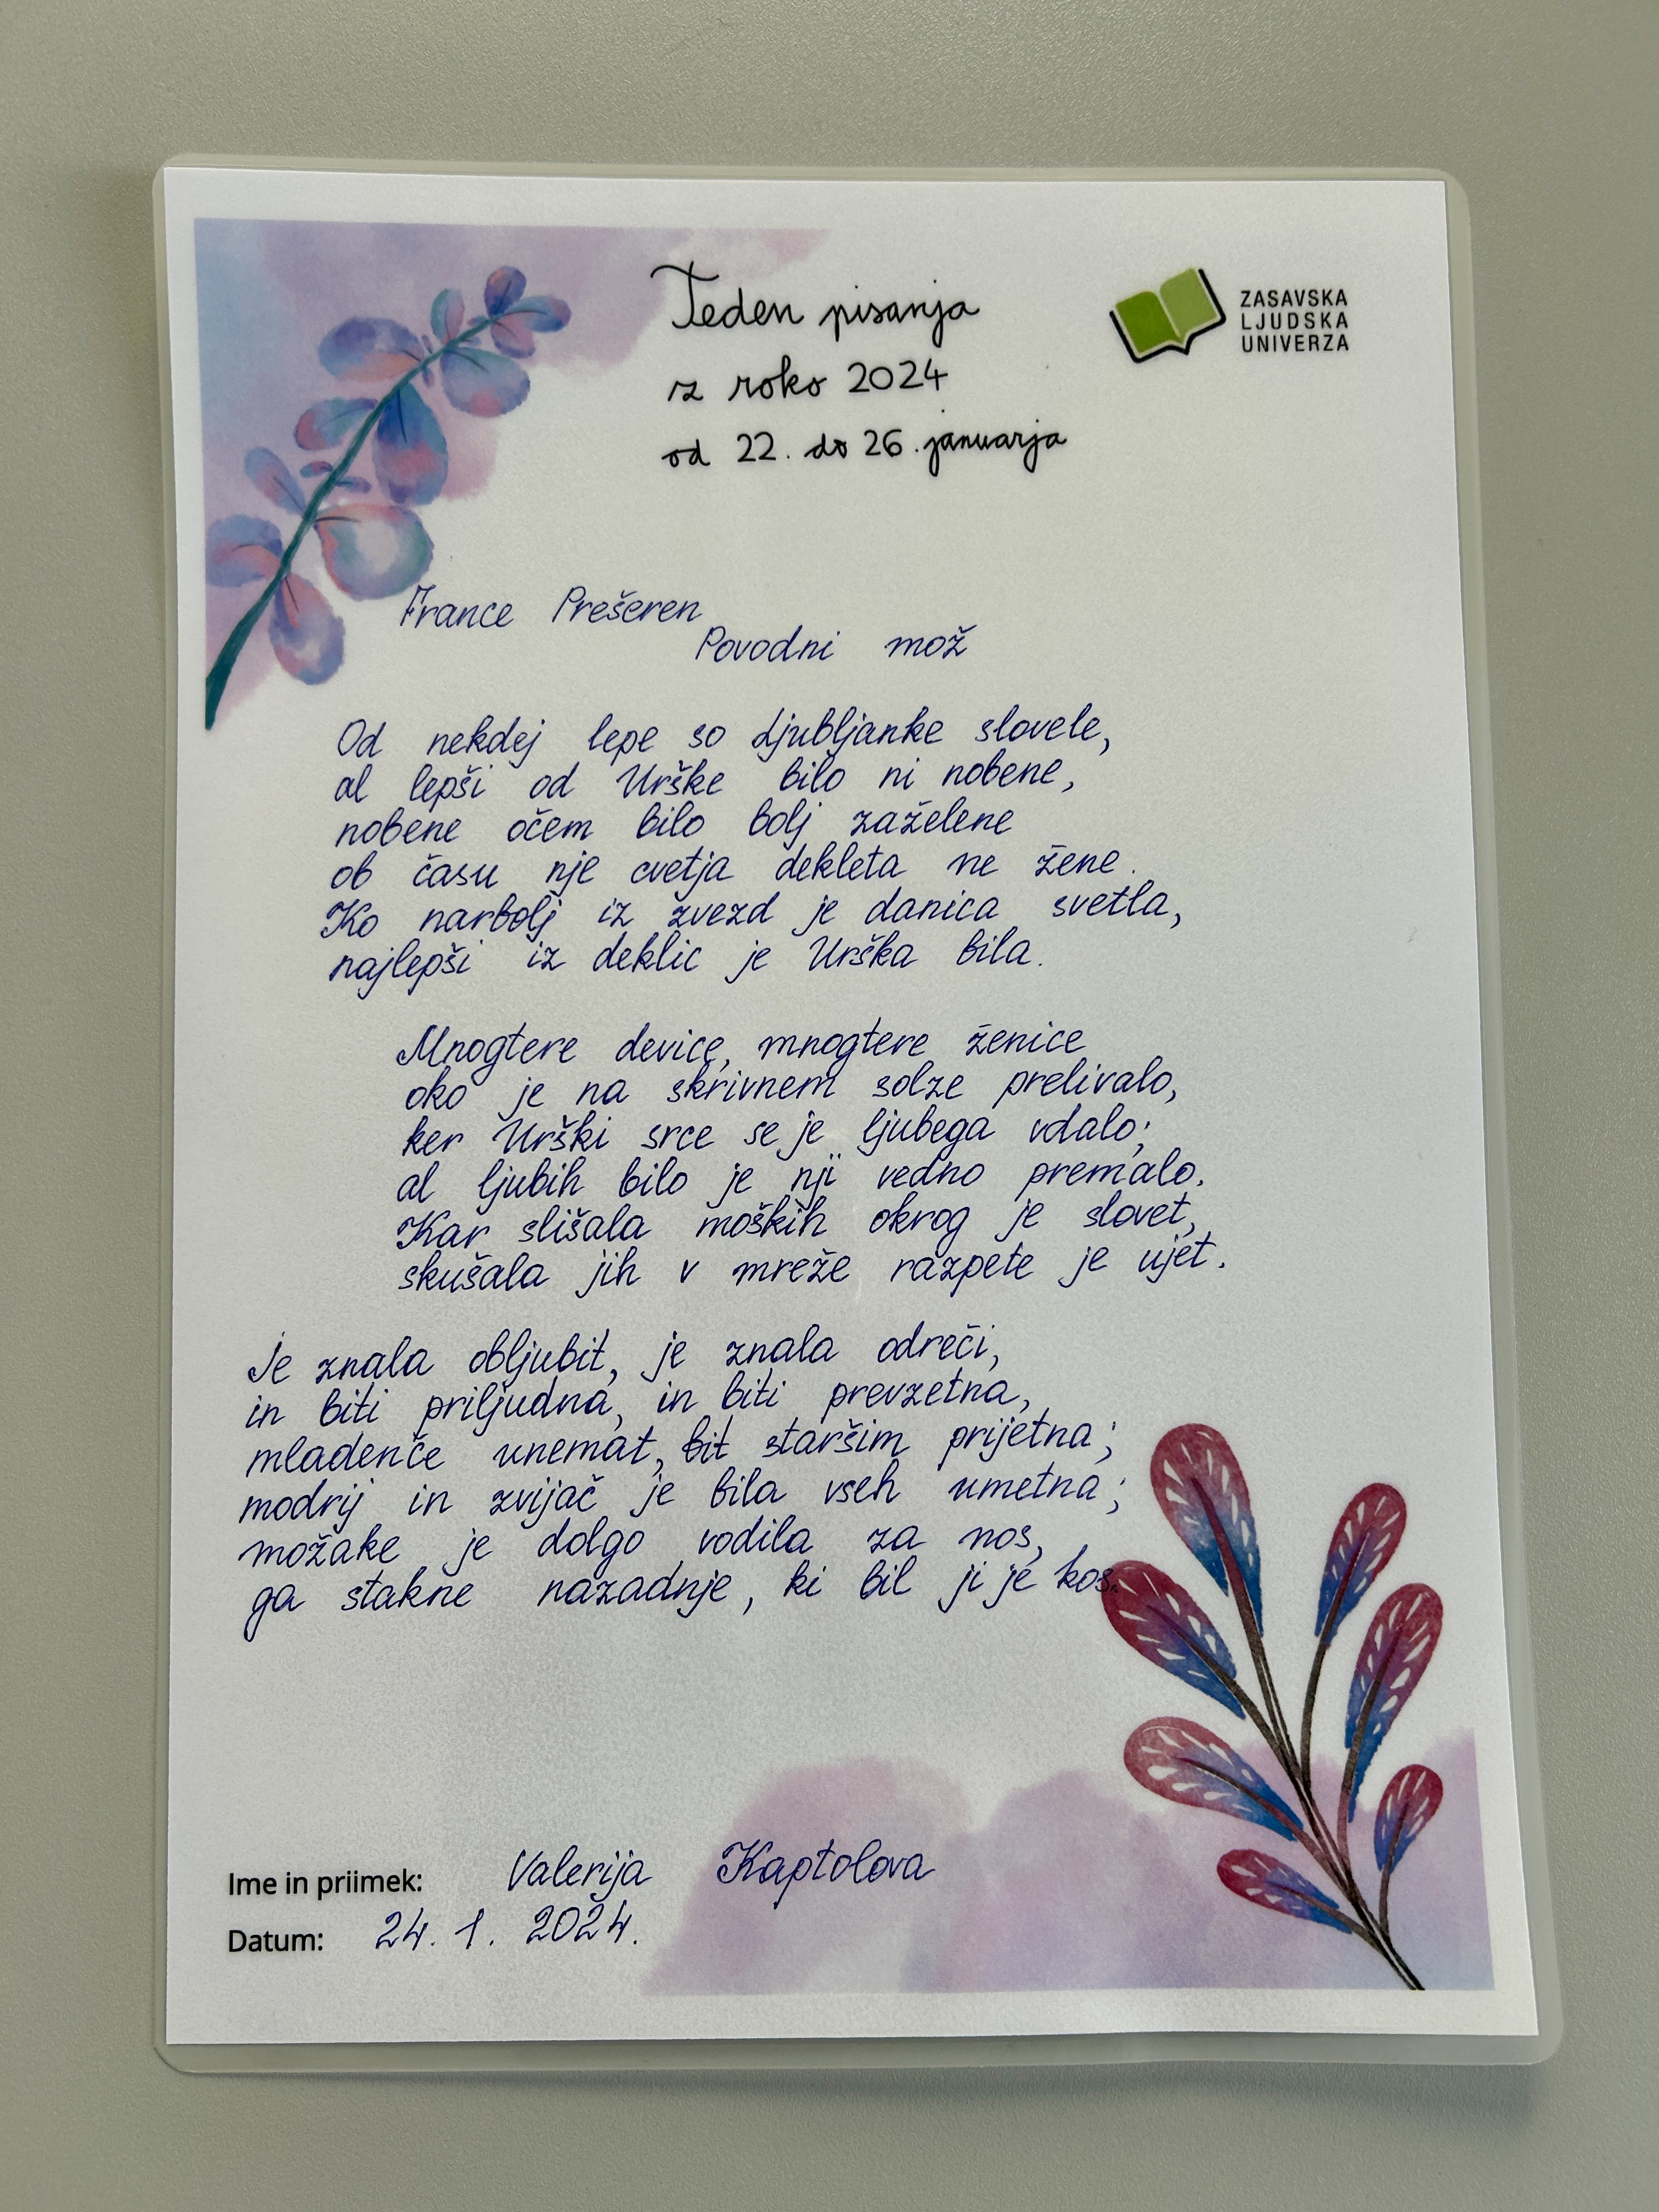 Teden pisanja
z roko 2024
od 22. do 26. januarja
ZASAVSKA
LJUDSKA
UNIVERZA
France Prešeren
Povodni mož
Od nekdej lepe so Ljubljanke slovele,
al lepši od Urške bilo ni nobene,
nobene očem bilo bolj zaželene
ob času nje cvetja dekleta ne žene.
Ko narbolj iz zvezd je danica svetla,
najlepši iz deklic je Urška bila.
Mnogtere device, mnogtere ženice
oko je na skrivnem solze prelivalo,
ker Urški srce se je ljubega vdalo;
al ljubih bilo je nji vedno premalo.
Kar slišala moških okrog je slovet,
skušala jih v mreže razpete je ujet.
Je znala obljubit, je znala odreči,
in biti priljudna, in biti prevzetna,
mladenče unemat, bit staršim prijetna;
modrij in zvijač je bila vseh umetna;
možake je dolgo vodila za nos,
ga stakne nazadnje, ki bil ji je kos.
Ime in priimek: Valerija Kaptolova
Datum: 24. 1. 2024.